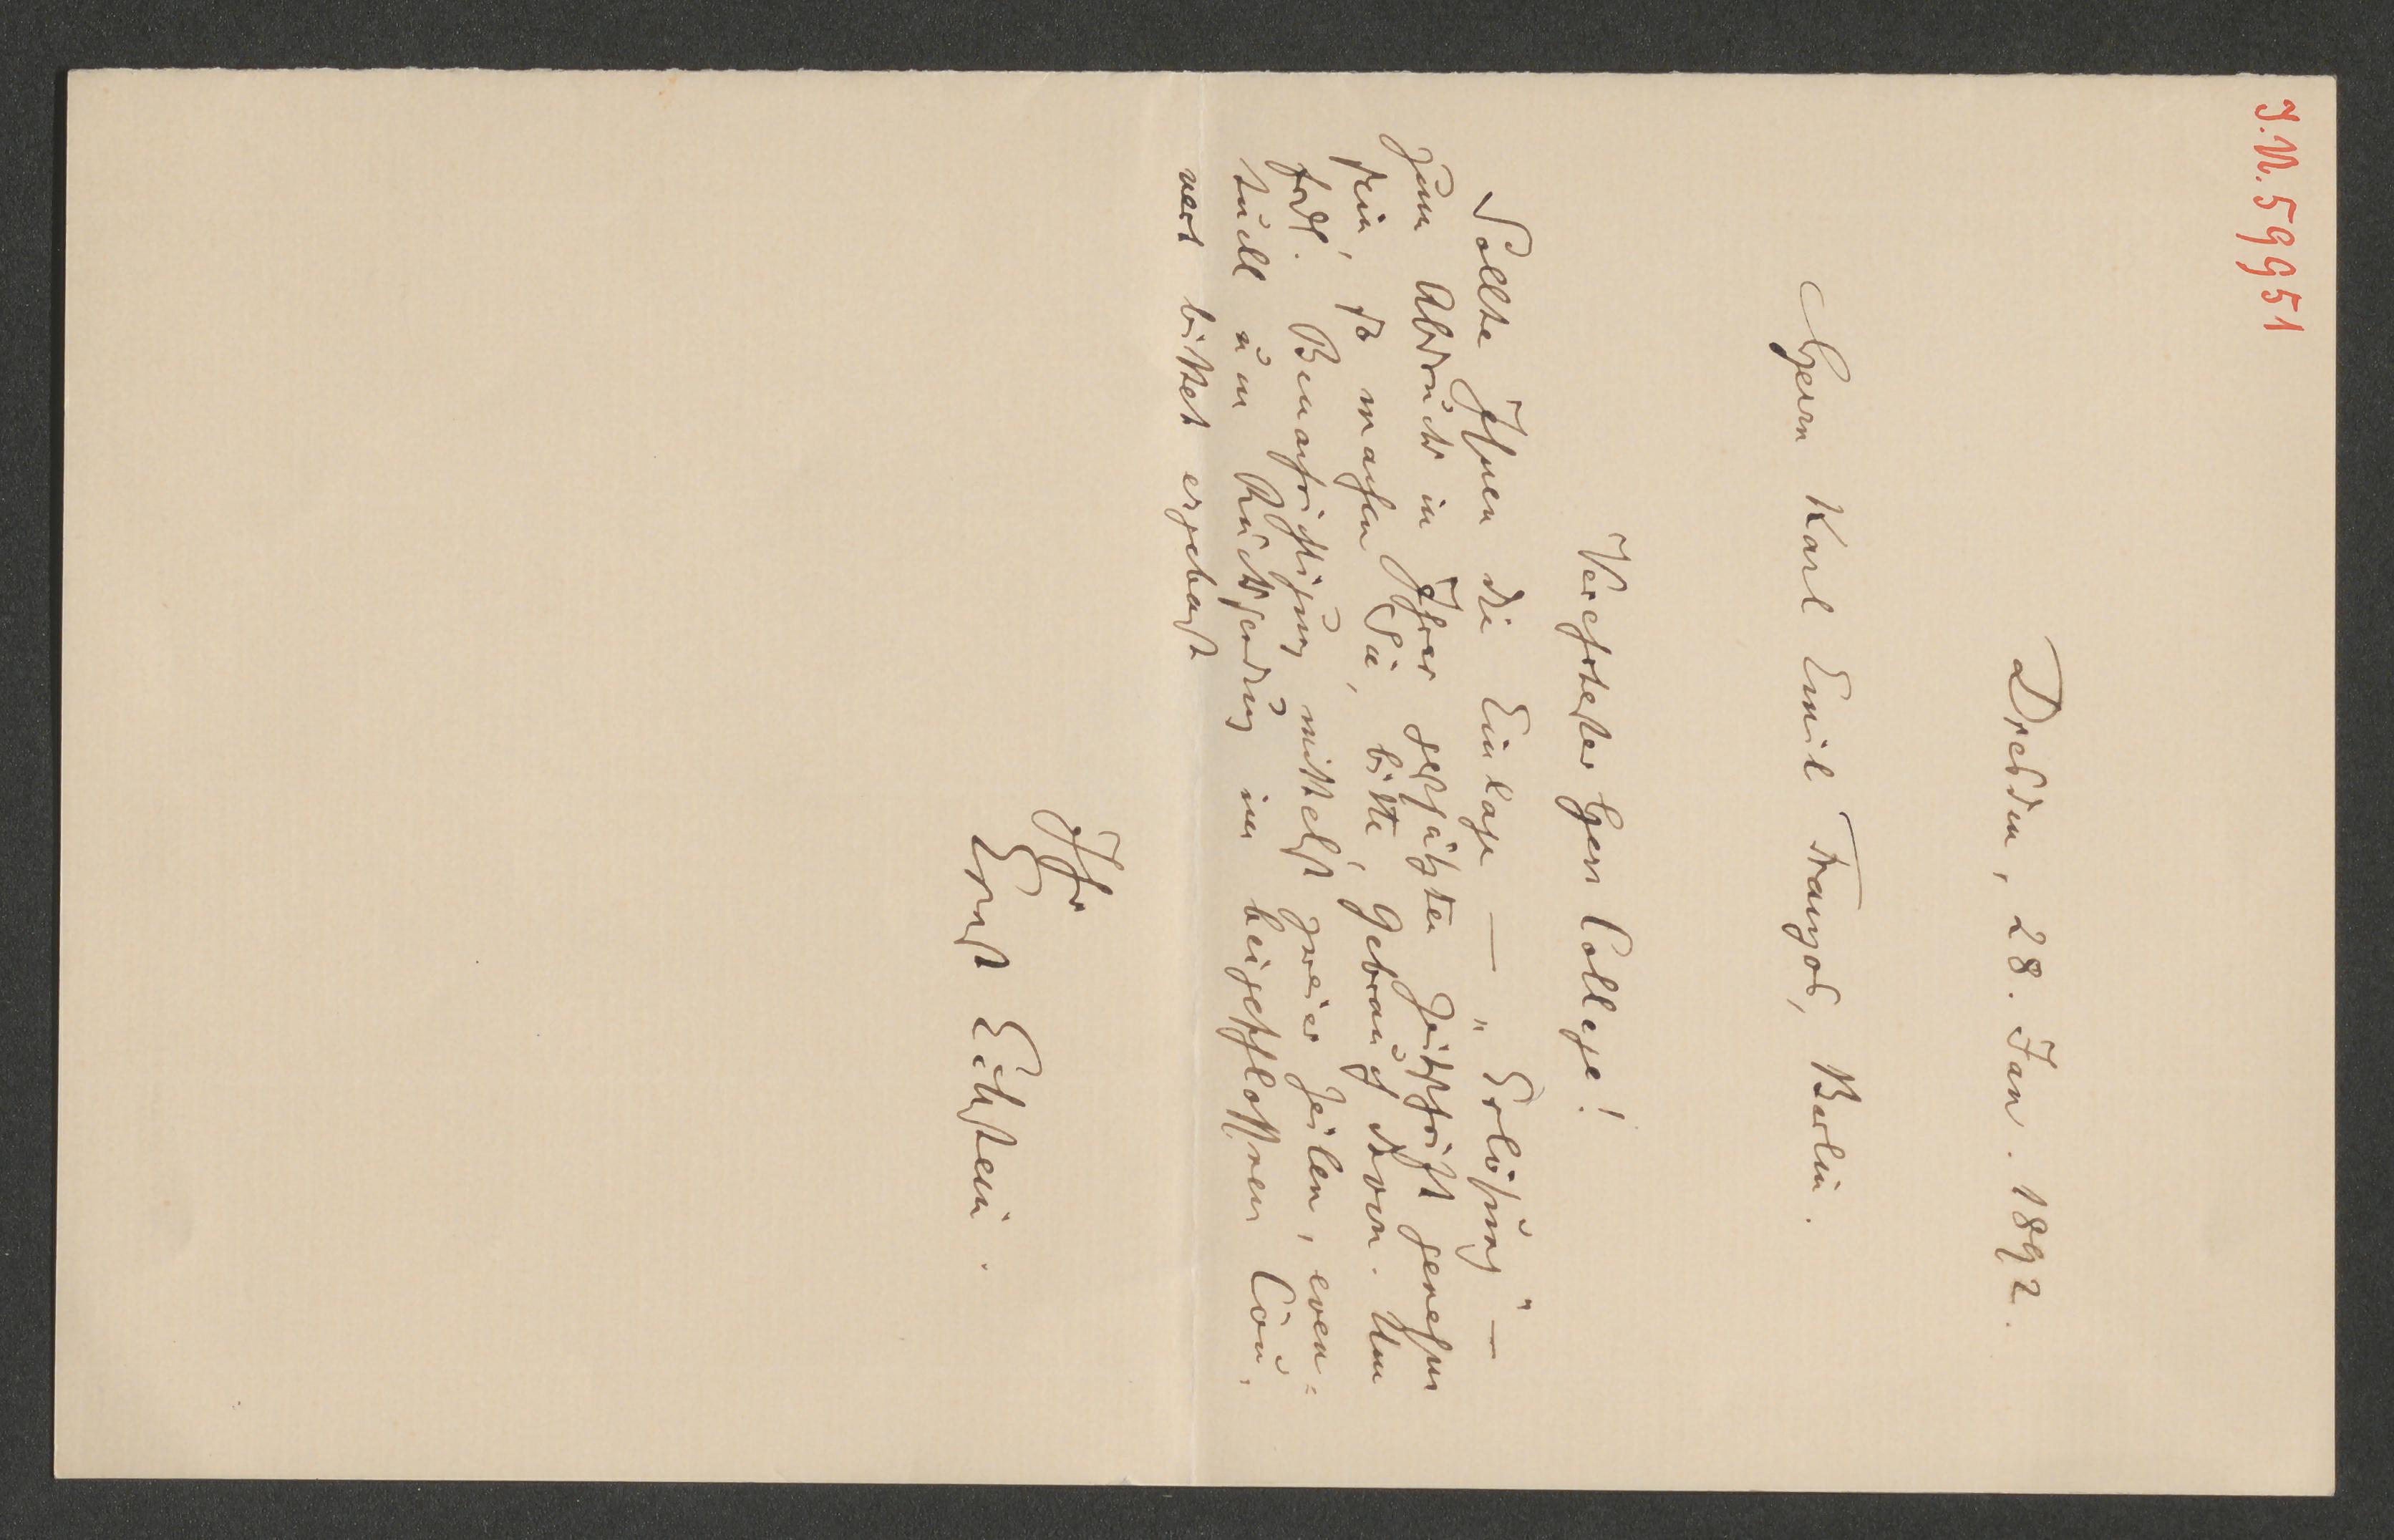 J.N. 59951
Dresden, 28. Jan. 1892.
Herrn Karl Emil Franzos, Berlin.
Verehrtester Herr College!
Sollte Ihnen die Einlage — „Erlösung" —
zum Abdruck in Ihrer geschätzten Zeitschrift genehm
sein, so machen Sie, bitte, Gebrauch davon. Um
frdl. Benachrichtigung mittelst zweier Zeilen, even=
tuell um Rücksendung im beigeschlossenen Cou-
vert bittet ergebenst
Ihr
Ernst Eckstein.